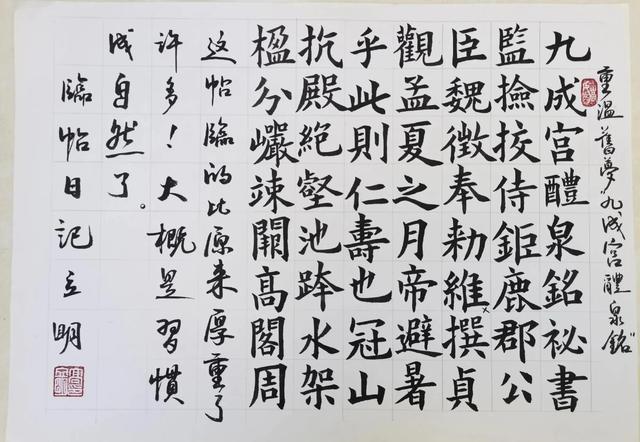 重溫舊夢"九成宮醴泉銘"
九成宮醴泉銘祕書
監撿挍侍鉅鹿郡公
臣魏徵奉勑維撰貞
觀孟夏之月帝避暑
乎此則仁壽也冠山
抗殿絕壑池跨水架
楹分巗竦闕高閣周
这帖臨的比原来厚重了
许多！大概是習慣
成自然了。
臨帖日記立明